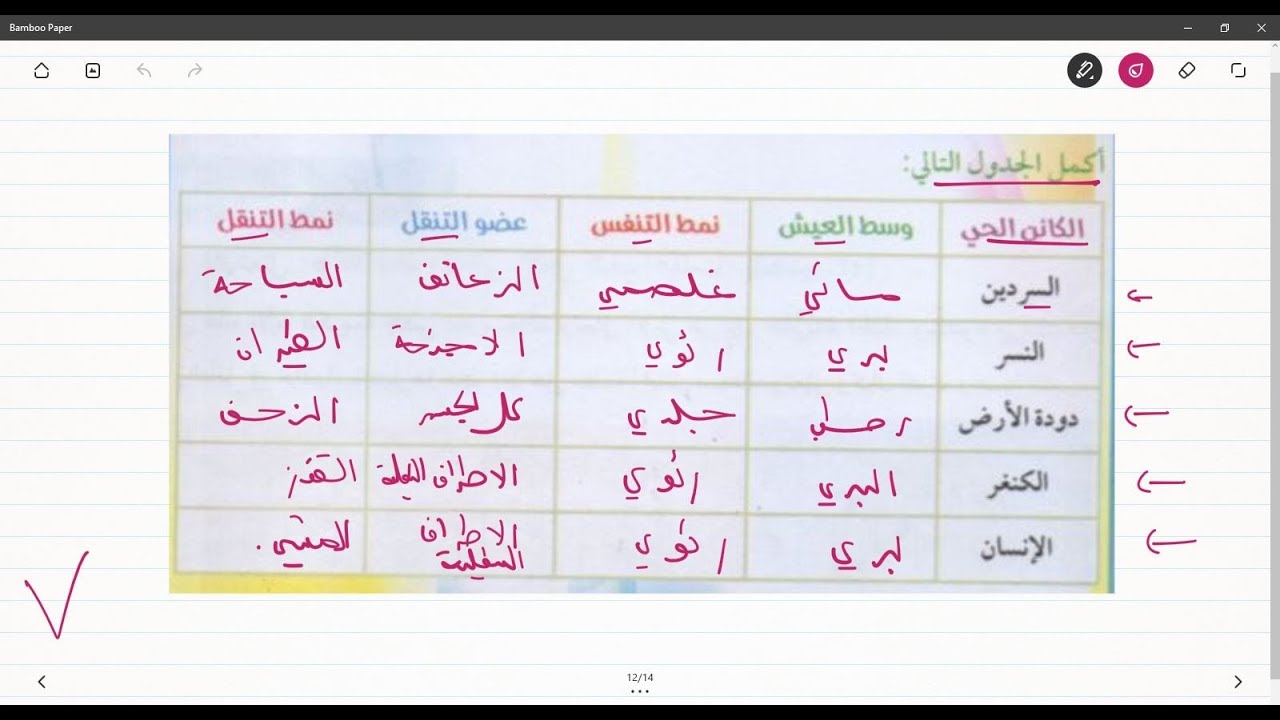 Bamboo Paper
أكمل الجدول التالي:
الكائن الحي وسط العيش نمط التنفس عضو التنقل نمط التنقل
السردين مائي غلصمي الزعانف السباحة
النسر بري رئوي الاجنحة الطيران
دودة الأرض رطب جلدي كل الجسم الزحف
الكنغر البري رئوي الاطراف القفز
الإنسان بري رئوي الاطراف السفلية المشي.
12/14